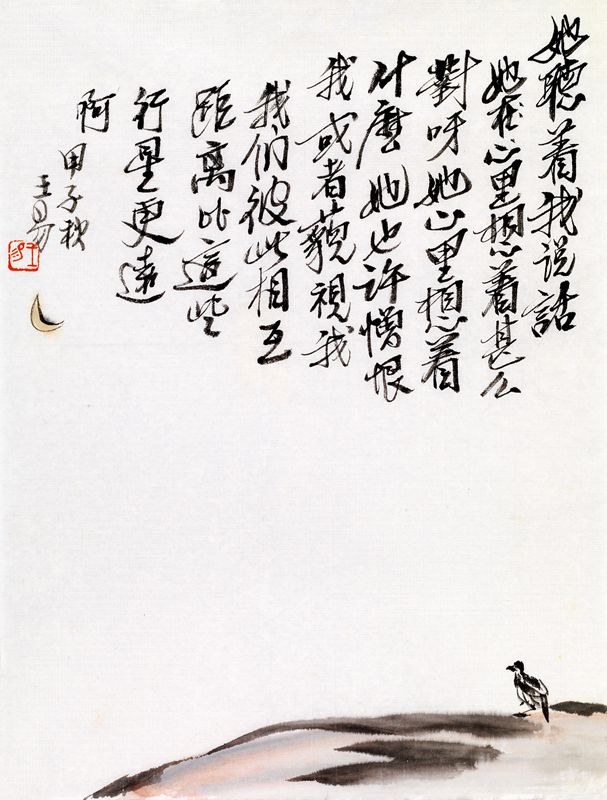 她聽着我说話
她在心里想着甚么
對呀她心里想着
什麼她也许憎恨
我或者藐視我
我们彼此相互
距离比這些
行星更遠
啊
甲子秋
王易